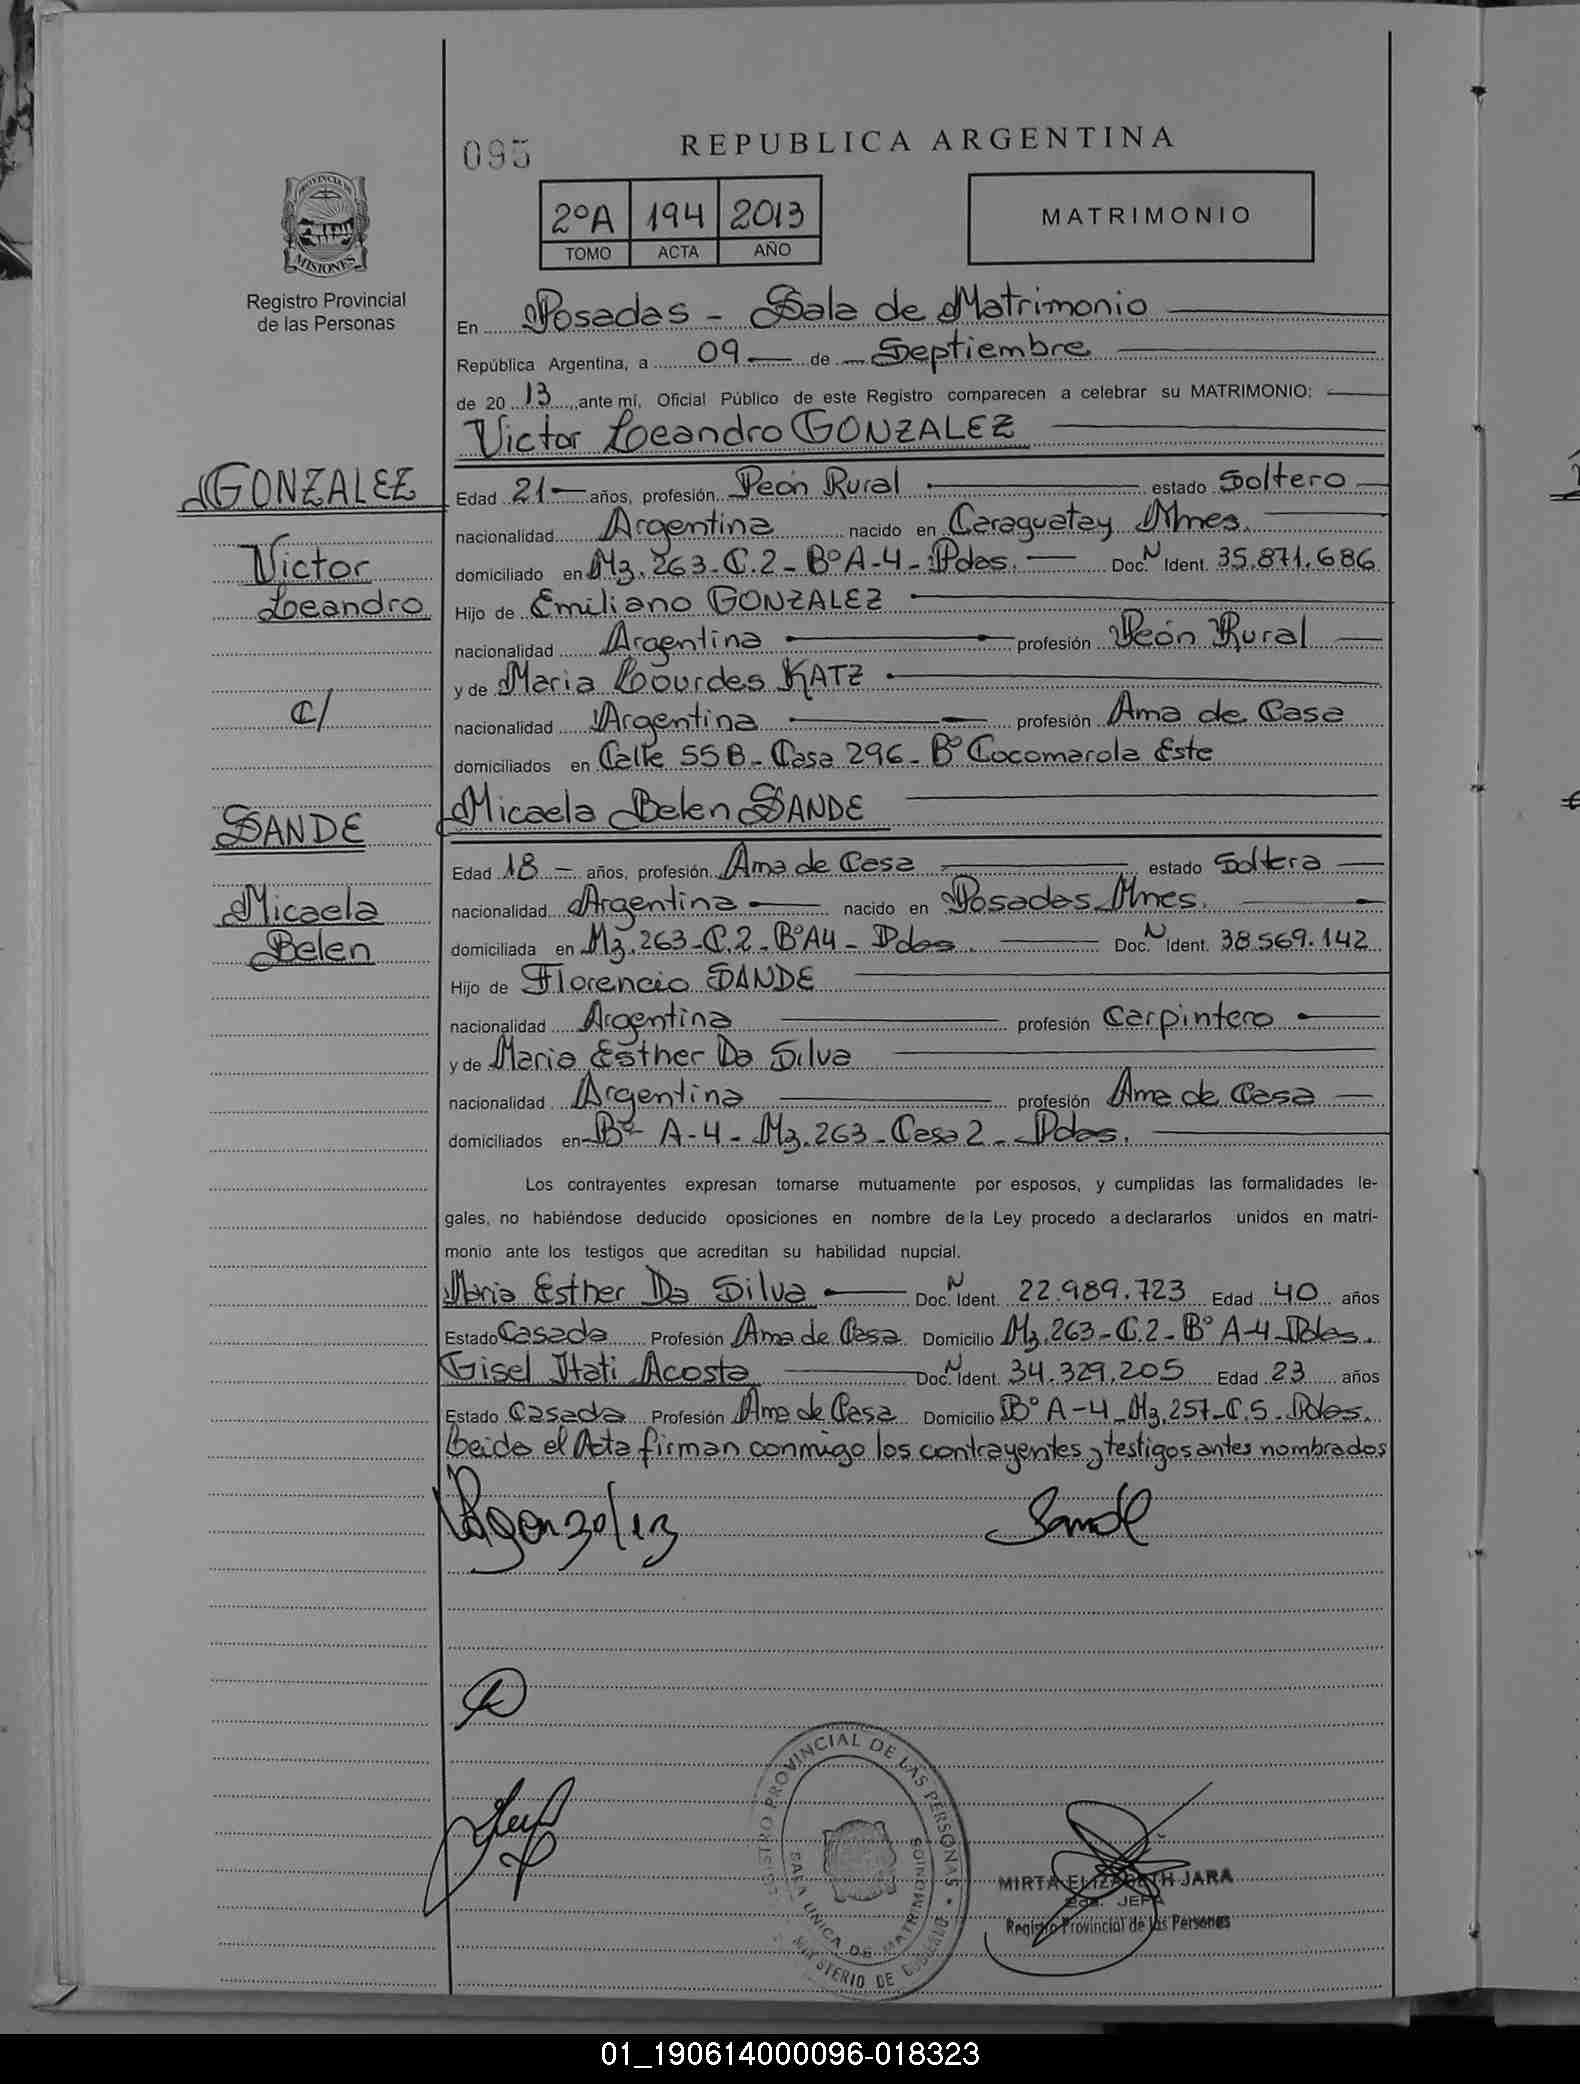 095
REPUBLICA ARGENTINA
2ºA 194 2013
TOMO ACTA AÑO
MATRIMONIO
PROVINCIA DE
MISIONES
Registro Provincial
de las Personas
En Posadas - Sala de Matrimonio
República Argentina, a 09 de Septiembre
de 20 13, ante mí, Oficial Público de este Registro comparecen a celebrar su MATRIMONIO:
Victor Leandro GONZALEZ
GONZALEZ
Victor
Leandro
C/
SANDE
Micaela
Belen
Edad 21 años, profesión Peón Rural estado Soltero
nacionalidad Argentina nacido en Caraguatay Mnes.
domiciliado en Mz. 263 - C. 2 - Bº A-4 - Pdas. Doc. N Ident. 35.871.686
Hijo de Emiliano GONZALEZ
nacionalidad Argentina profesión Peón Rural
y de Maria Lourdes KATZ
nacionalidad Argentina profesión Ama de Casa
domiciliados en Calle 55 B - Casa 296 - Bº Cocomarola Este
Micaela Belen SANDE
Edad 18 años, profesión Ama de Casa estado Soltera
nacionalidad Argentina nacido en Posadas Mnes.
domiciliada en Mz. 263 - C. 2 - Bº A4 - Pdas. Doc. N Ident. 38.569.142
Hijo de Florencio SANDE
nacionalidad Argentina profesión Carpintero
y de Maria Esther Da Silva
nacionalidad Argentina profesión Ama de Casa
domiciliados en Bº A-4 - Mz. 263 - Casa 2 - Pdas.
Los contrayentes expresan tomarse mutuamente por esposos, y cumplidas las formalidades le-
gales, no habiéndose deducido oposiciones en nombre de la Ley procedo a declararlos unidos en matri-
monio ante los testigos que acreditan su habilidad nupcial.
Maria Esther Da Silva Doc. N Ident. 22.989.723 Edad 40 años
Estado Casada Profesión Ama de Casa Domicilio Mz. 263 - C. 2 - Bº A-4 Pdas.
Gisel Itati Acosta Doc. N Ident. 34.329.205 Edad 23 años
Estado Casada Profesión Ama de Casa Domicilio Bº A-4 - Mz. 257 - C. 5 - Pdas.
Leida el Acta firman conmigo los contrayentes y testigos antes nombrados
Sande
REGISTRO PROVINCIAL DE LAS PERSONAS
SALA UNICA DE MATRIMONIOS
MINISTERIO DE GOBIERNO
MIRTA ELIZABETH JARA
JEFA
Registro Provincial de las Personas
01_190614000096-018323